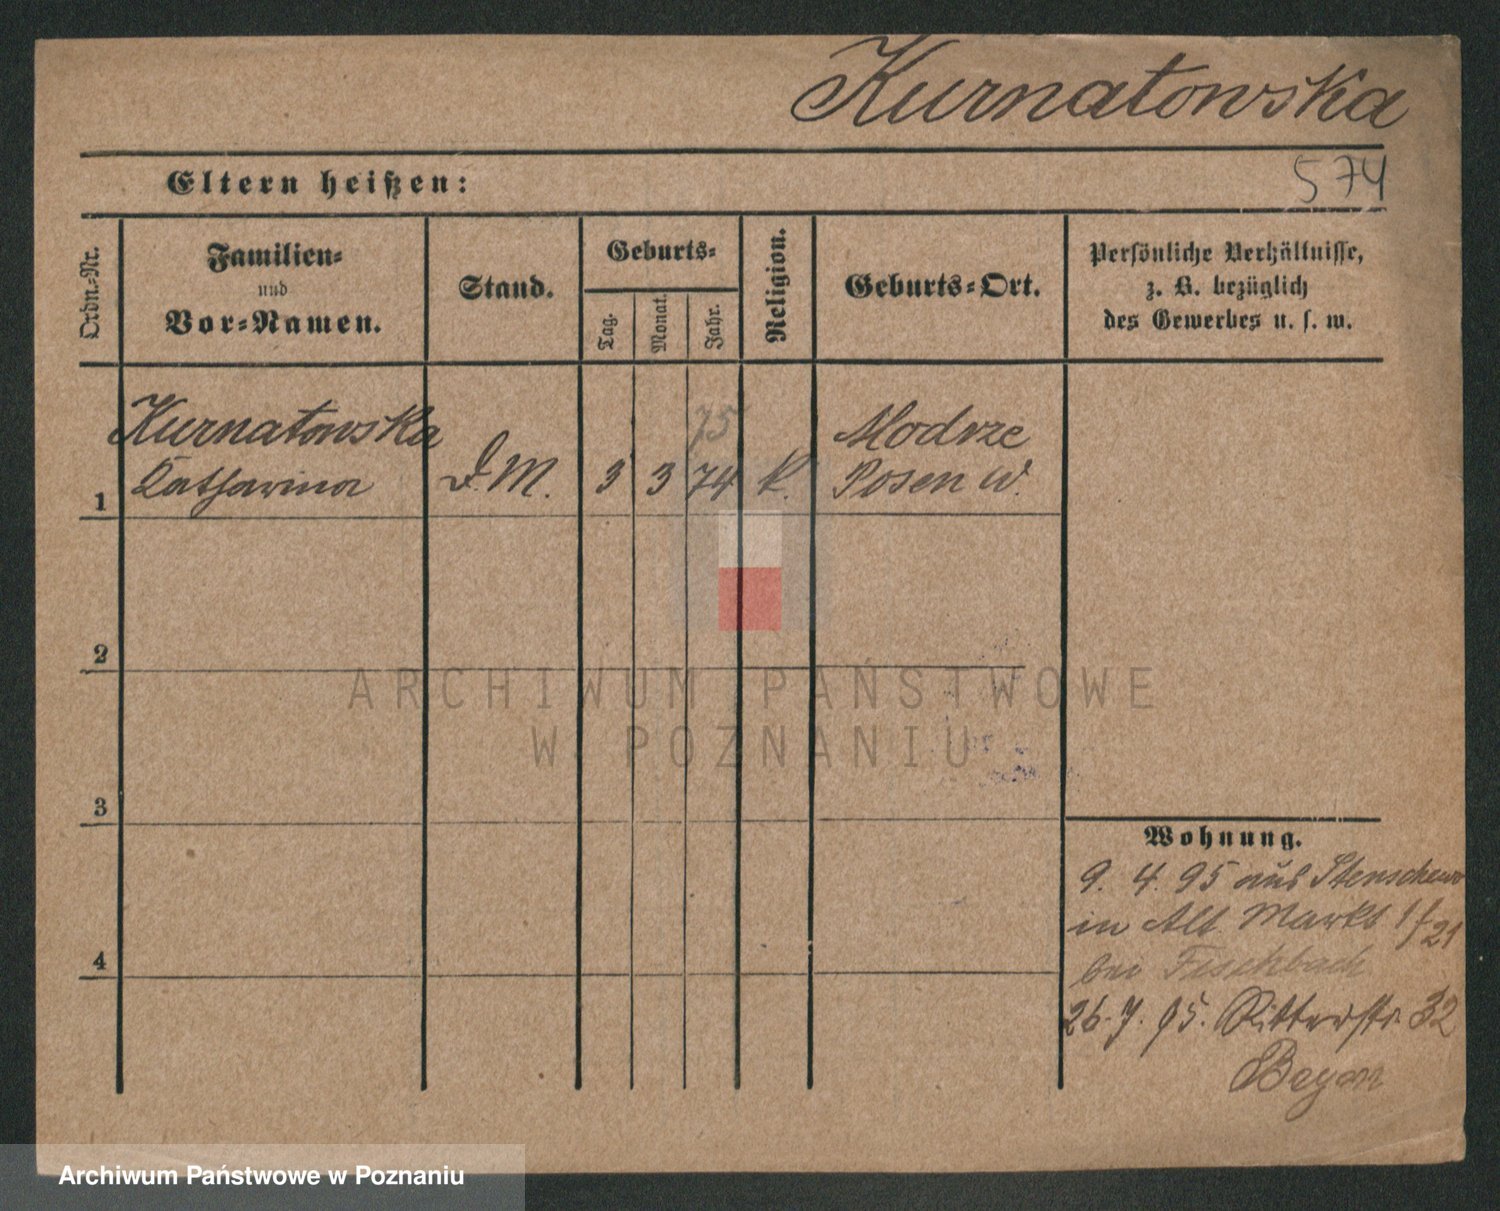 Kurnatowska
574
Eltern heißen:
Ordn.-Nr.
Familien-
und
Vor-Namen.
Stand.
Geburts-
Tag.
Monat.
Jahr.
Religion.
Geburts-Ort.
Persönliche Verhältnisse,
z. B. bezüglich
des Gewerbes u. s. w.
1
Kurnatowska
Katharina
D. M.
3
3
75
74
k.
Modrze
Posen W.
2
3
4
Wohnung.
9. 4. 95 aus Stenschewo
in Alt. Markt 1/21
bei Fischbach
26. 7. 95. Ritterstr. 32
Beyer
ARCHIWUM PAŃSTWOWE
W POZNANIU
Archiwum Państwowe w Poznaniu